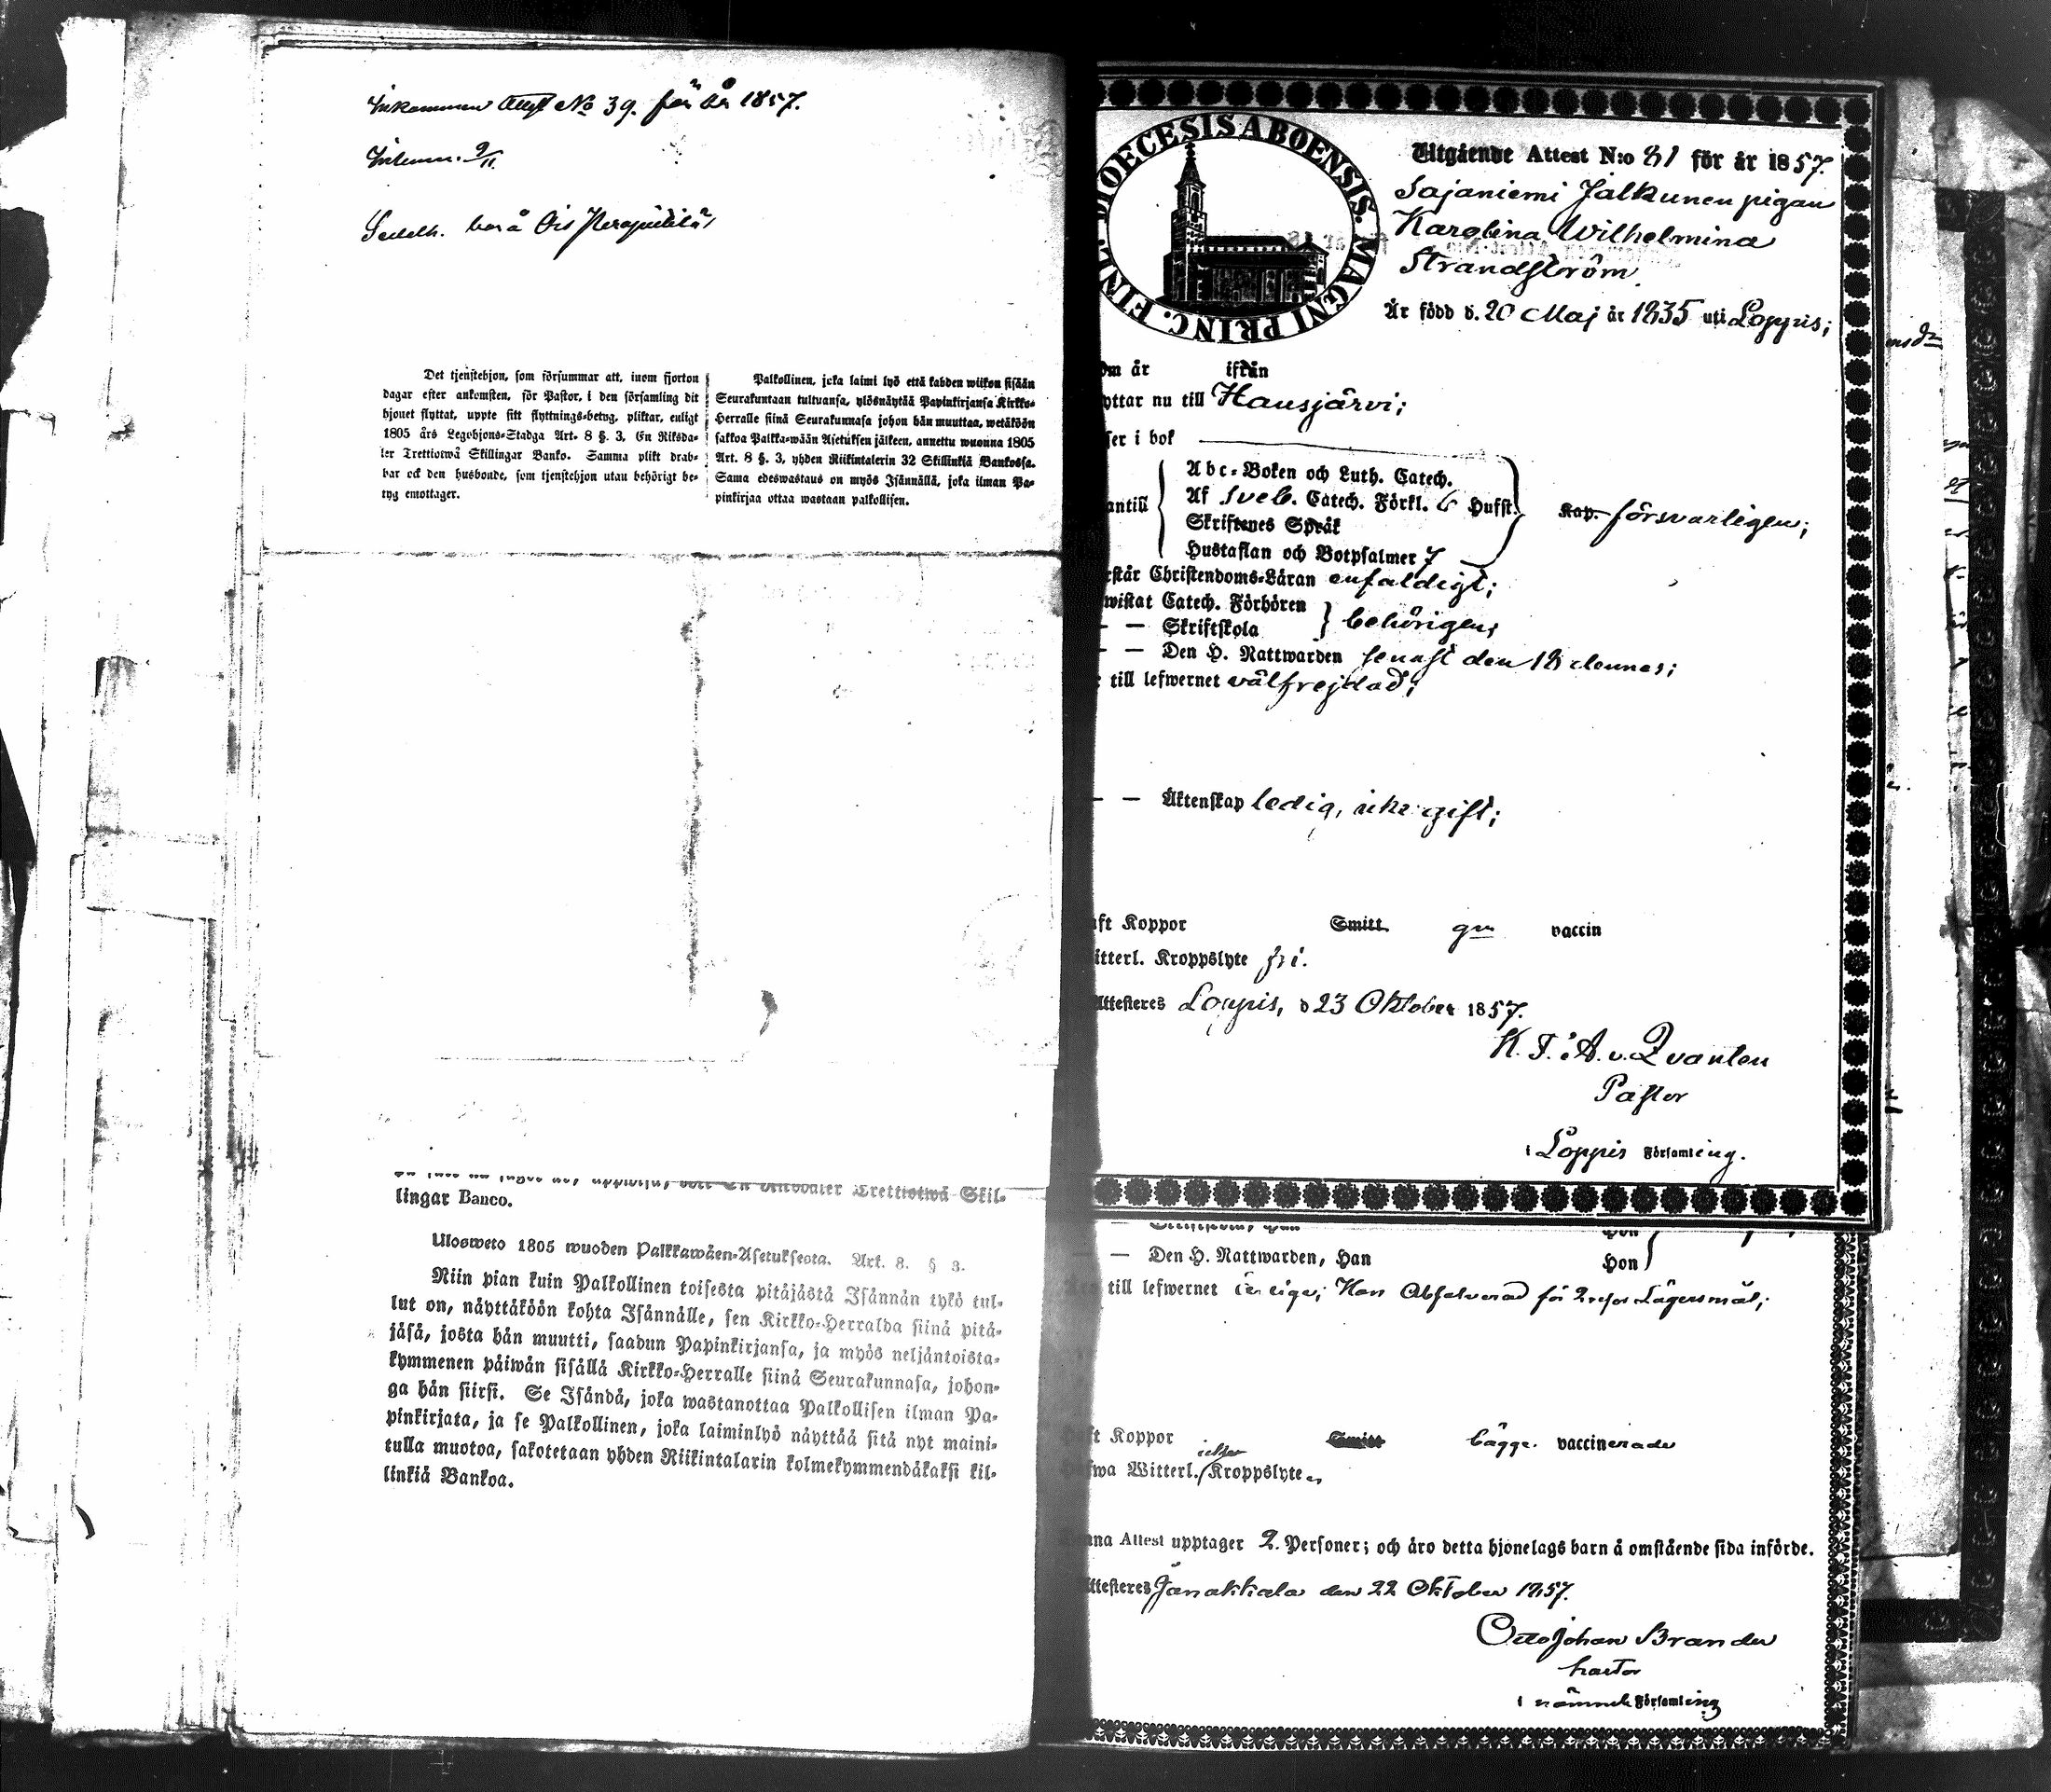 Inkommen Attest No 39. för år 1857.
Inlemn. 9/11.
Sedelh. bor å Ois
Det tjenstehjon, som försummar att, inom fjorton
dagar efter ankomsten, för Pastor, i den församling dit
hjonet flyttat, uppte sitt flyttnings-betyg, pliktar, enligt
1805 års Legohjons-Stadga Art. 8 §. 3, En Riksda-
ler Trettiotwå Skillingar Banko. Samma plikt drab-
bar ock den husbonde, som tjenstehjon utan behörigt be-
tyg emottager.
Palkollinen, joka laimi lyö että kahden wiikon sisään
Seurakuntaan tultuansa, ylösnäytää Papinkirjansa Kirkko-
Herralle siinä Seurakunnasa johon hän muuttaa, wetäköön
sakkoa Palkka-wään Asetuksen jälkeen, annettu wuonna 1805
Art. 8 §. 3, yhden Riikintalerin 32 Skillinkiä Bankossa.
Sama edeswastaus on myös Isännällä, joka ilman Pa-
pinkirjaa ottaa wastaan palkollisen.
Trettiotwå Skil-
lingar Banco.
Ulosweto 1805 wuoden Palkkawäen-Asetuksesta. Art. 8. § 3.
Niin pian kuin Palkollinen toisesta pitäjästä Isännän tykö tul-
lut on, näyttäköön kohta Isännälle, sen Kirkko-Herralda siinä pitä-
jäsä, josta hän muutti, saadun Papinkirjansa, ja myös neljäntoista-
kymmenen päiwän sisällä Kirkko-Herralle siinä Seurakunnasa, johon-
ga hän siirsi. Se Isändä, joka wastanottaa Palkollisen ilman Pa-
pinkirjata, ja se Palkollinen, joka laiminlyö näyttää sitä nyt maini-
tulla muotoa, sakotetaan yhden Riikintalarin kolmekymmendäkaksi kil-
linkiä Bankoa.
DIOECESIS ABOENSIS. MAGNI PRINC. FINL.
Utgående Attest N:o 81 för år 1857.
Sajaniemi Jalkunen pigan
Karolina Wilhelmina
Strandström
Är född d. 20 Maj år 1835 uti Loppis;
om år ifrån
yttar nu till Hausjärvi;
ser i bok
antill
Abc-Boken och Luth. Catech.
Af Sveb. Catech. Förkl. 6 Hufst.
Skriftenes Språk
Hustaflan och Botpsalmer 7
Kap. försvarligen;
rstår Christendoms-Läran enfaldigt;
wistat Catech. Förhören
— — Skriftskola
behörigen;
— — Den H. Nattwarden senast den 18 dennes;
till lefwernet välfrejdad;
— — Äktenskap ledig, icke gift;
aft Koppor Smitt gm vaccin
itterl. Kroppslyte fri.
Attesteres Loppis, d 23 Oktober 1857.
K. F. A. v. Qvanten
Pastor
i Loppis Församling.
Hon
— — Den H. Nattwarden, Han Hon
till lefwernet ärlige; Han Absolverad för Lägersmål;
ft Koppor Smitt bägge vaccinerade
icke
fwa Witterl. Kroppslyten
nna Attest upptager 2. Personer; och äro detta hjonelags barn å omstående sida införde.
ttesteres Janakkala den 22 Oktober 1857.
Otto Johan Brander
Pastor
i nämnde Församling